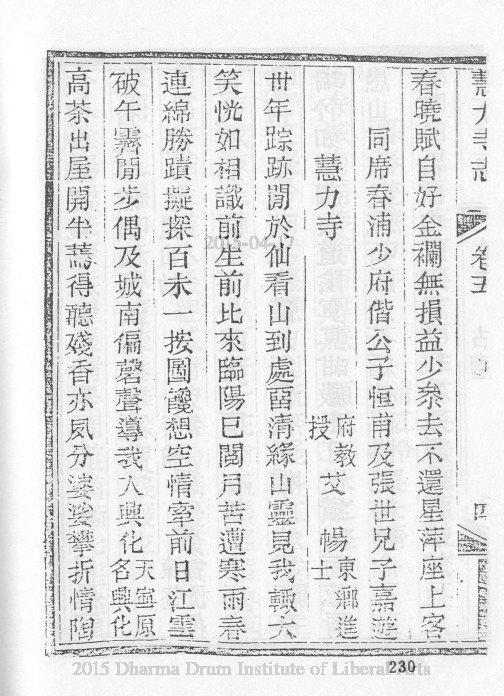 慧力寺志
卷五
四
春曉賦自好金襴無損益少叅去不還星萍座上客
同席春浦少府偕公子恒甫及張世兄子嘉遊
慧力寺 府教授 艾暢 東鄉進士
卅年踪跡閒於仙看山到處畱清緣山靈見我輒大
笑恍如相識前生前比來臨陽巳閱月苦遭寒雨春
連綿勝蹟擬探百未一按圖 想空情牽前日江雲
破午霽閒步偶及城南偏磬聲導我入興化 天寧原名興化
高茶出屋開半蔫得聽殘香亦夙分婆娑攀折情
230
2015-04-17
2015 Dharma Drum Institute of Liberal Arts